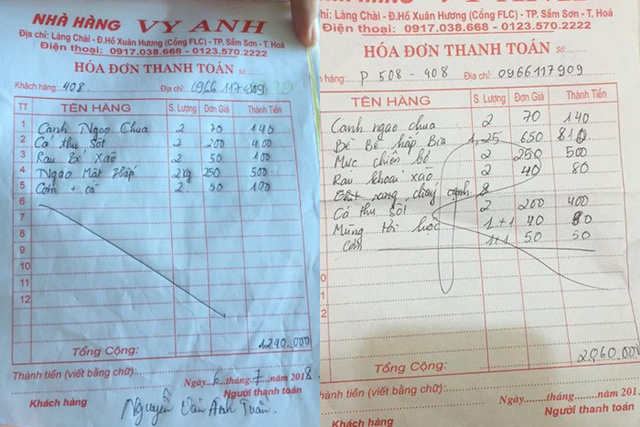 NHÀ HÀNG VY ANH
Địa chỉ: Làng Chài - Đ.Hồ Xuân Hương (Cổng FLC) - TP. Sầm Sơn - T. Hoá
Điện thoại: 0917.038.668 - 0123.570.2222
HÓA ĐƠN THANH TOÁN Số
Khách hàng: 408. Địa chỉ: 0966117909
TT TÊN HÀNG S. Lượng Đơn Giá Thành Tiền
1 Canh Ngao Chua 2 70 140
2 Cá thu Sốt 2 200 400
3 Rau Bí Xào 2 50 100
4 Ngao Mật Hấp 2kg 250 500
5 Cơm + cà 2 50 100
6
7
8
9
10
11
12
Tổng Cộng: 1240.000
Thành tiền (viết bằng chữ):
Ngày 6 tháng 7 năm 2018
Khách hàng Người thanh toán
Nguyễn Văn Anh Tuấn.
Địa chỉ: Làng Chài - Đ.Hồ Xuân Hương (Cổng FLC) - TP. Sầm Sơn - T. Hoá
Điện thoại: 0917.038.668 - 0123.570.2222
HÓA ĐƠN THANH TOÁN Số
hàng: P 508 - 408 Địa chỉ: 0966117909
TÊN HÀNG S. Lượng Đơn Giá Thành Tiền
Canh ngao chua 2 70 140
Bề Bề hấp Bia 1,25 650 810
Mực chiên bơ 2 250 500
Rau khoai xào 2 40 80
Cá thu sốt 2 200 400
Mừng tơi luộc 1+1 40 80
Cơm 1+1 50 50
Tổng Cộng: 2,060.000
hành tiền (viết bằng chữ):
Ngày tháng năm 201
Khách hàng Người thanh toán